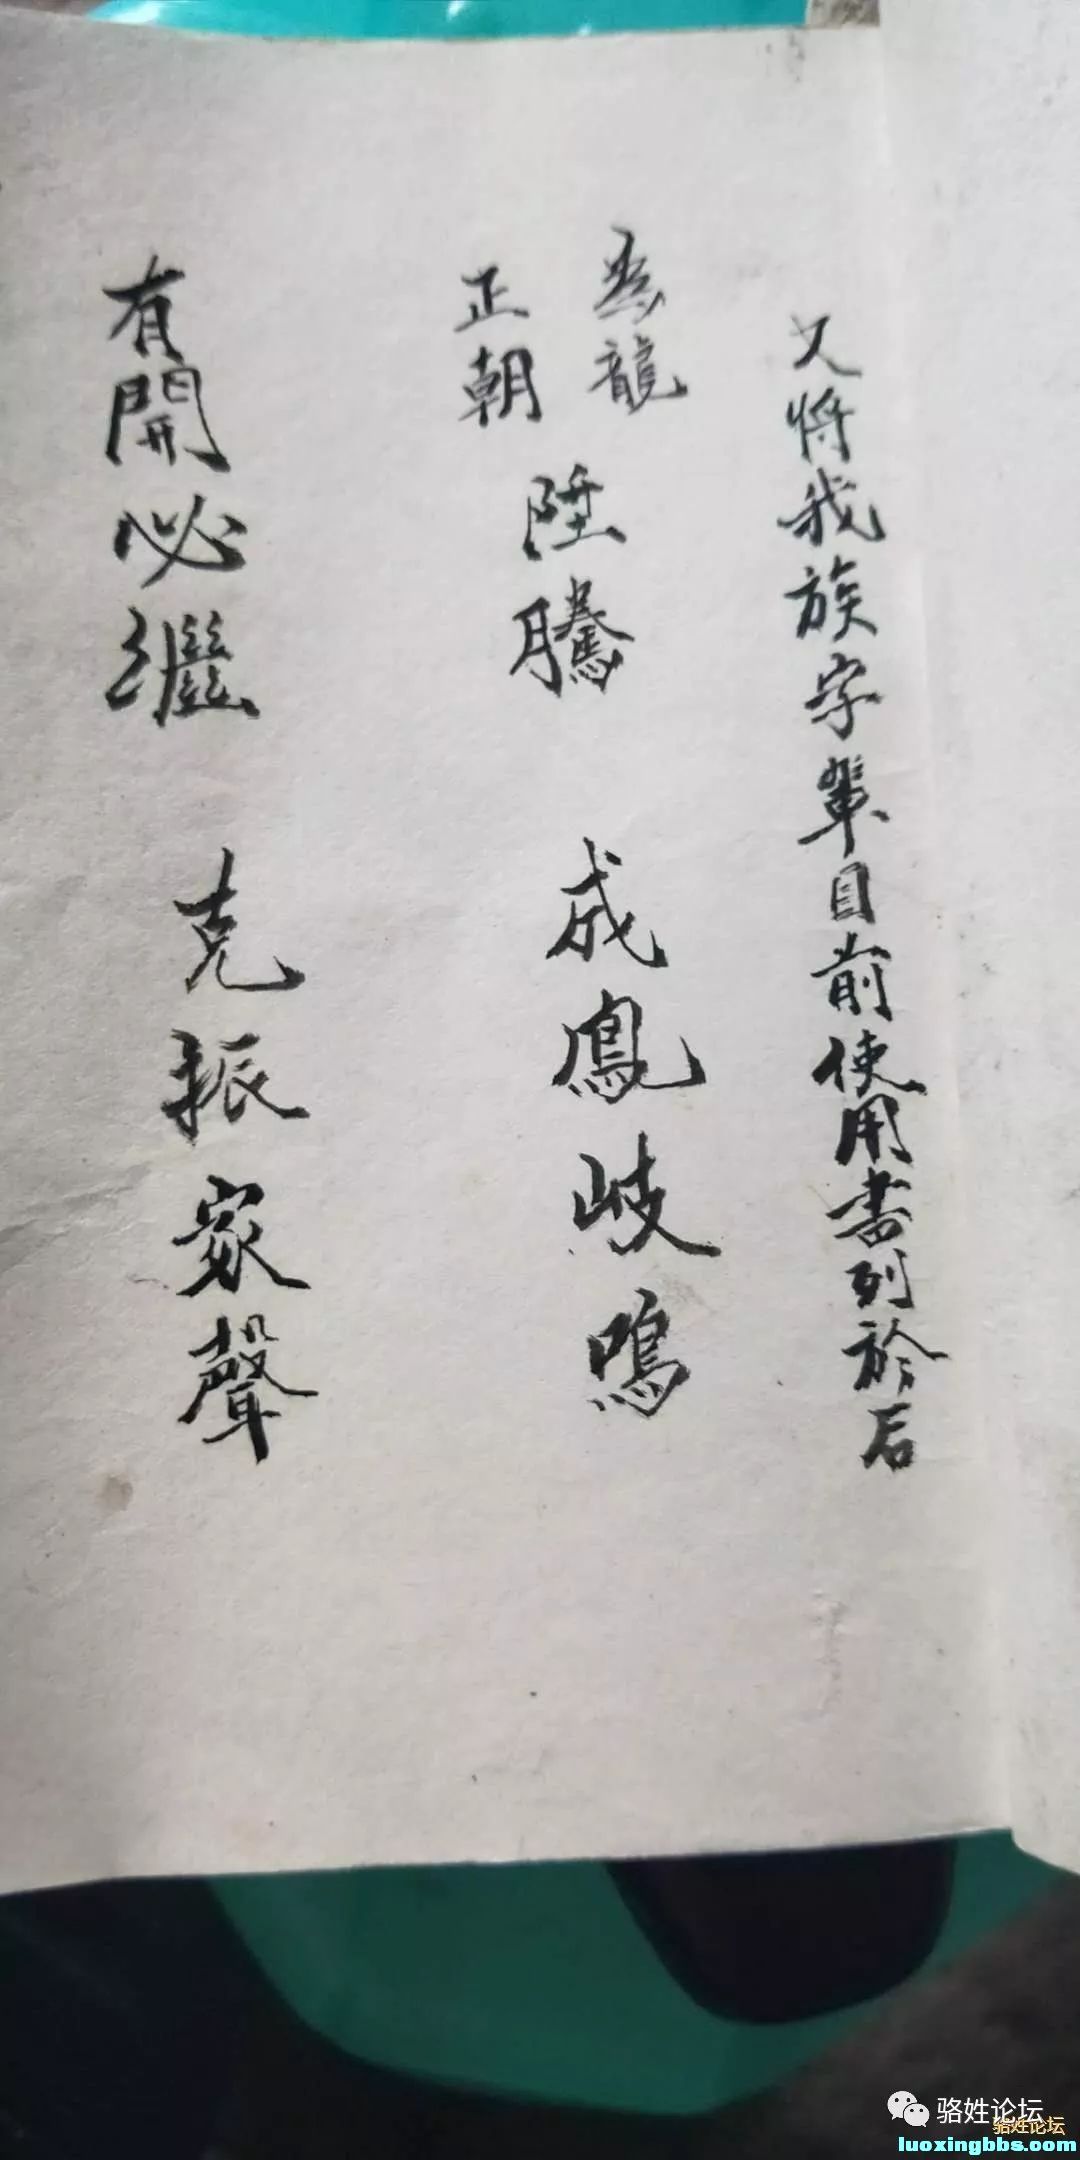 又将我族字輩目前使用書列於后
為龍
正朝
陞騰 成鳳岐鳴
有開必繼 克振家聲
骆姓论坛
骆姓论坛
luoxingbbs.com